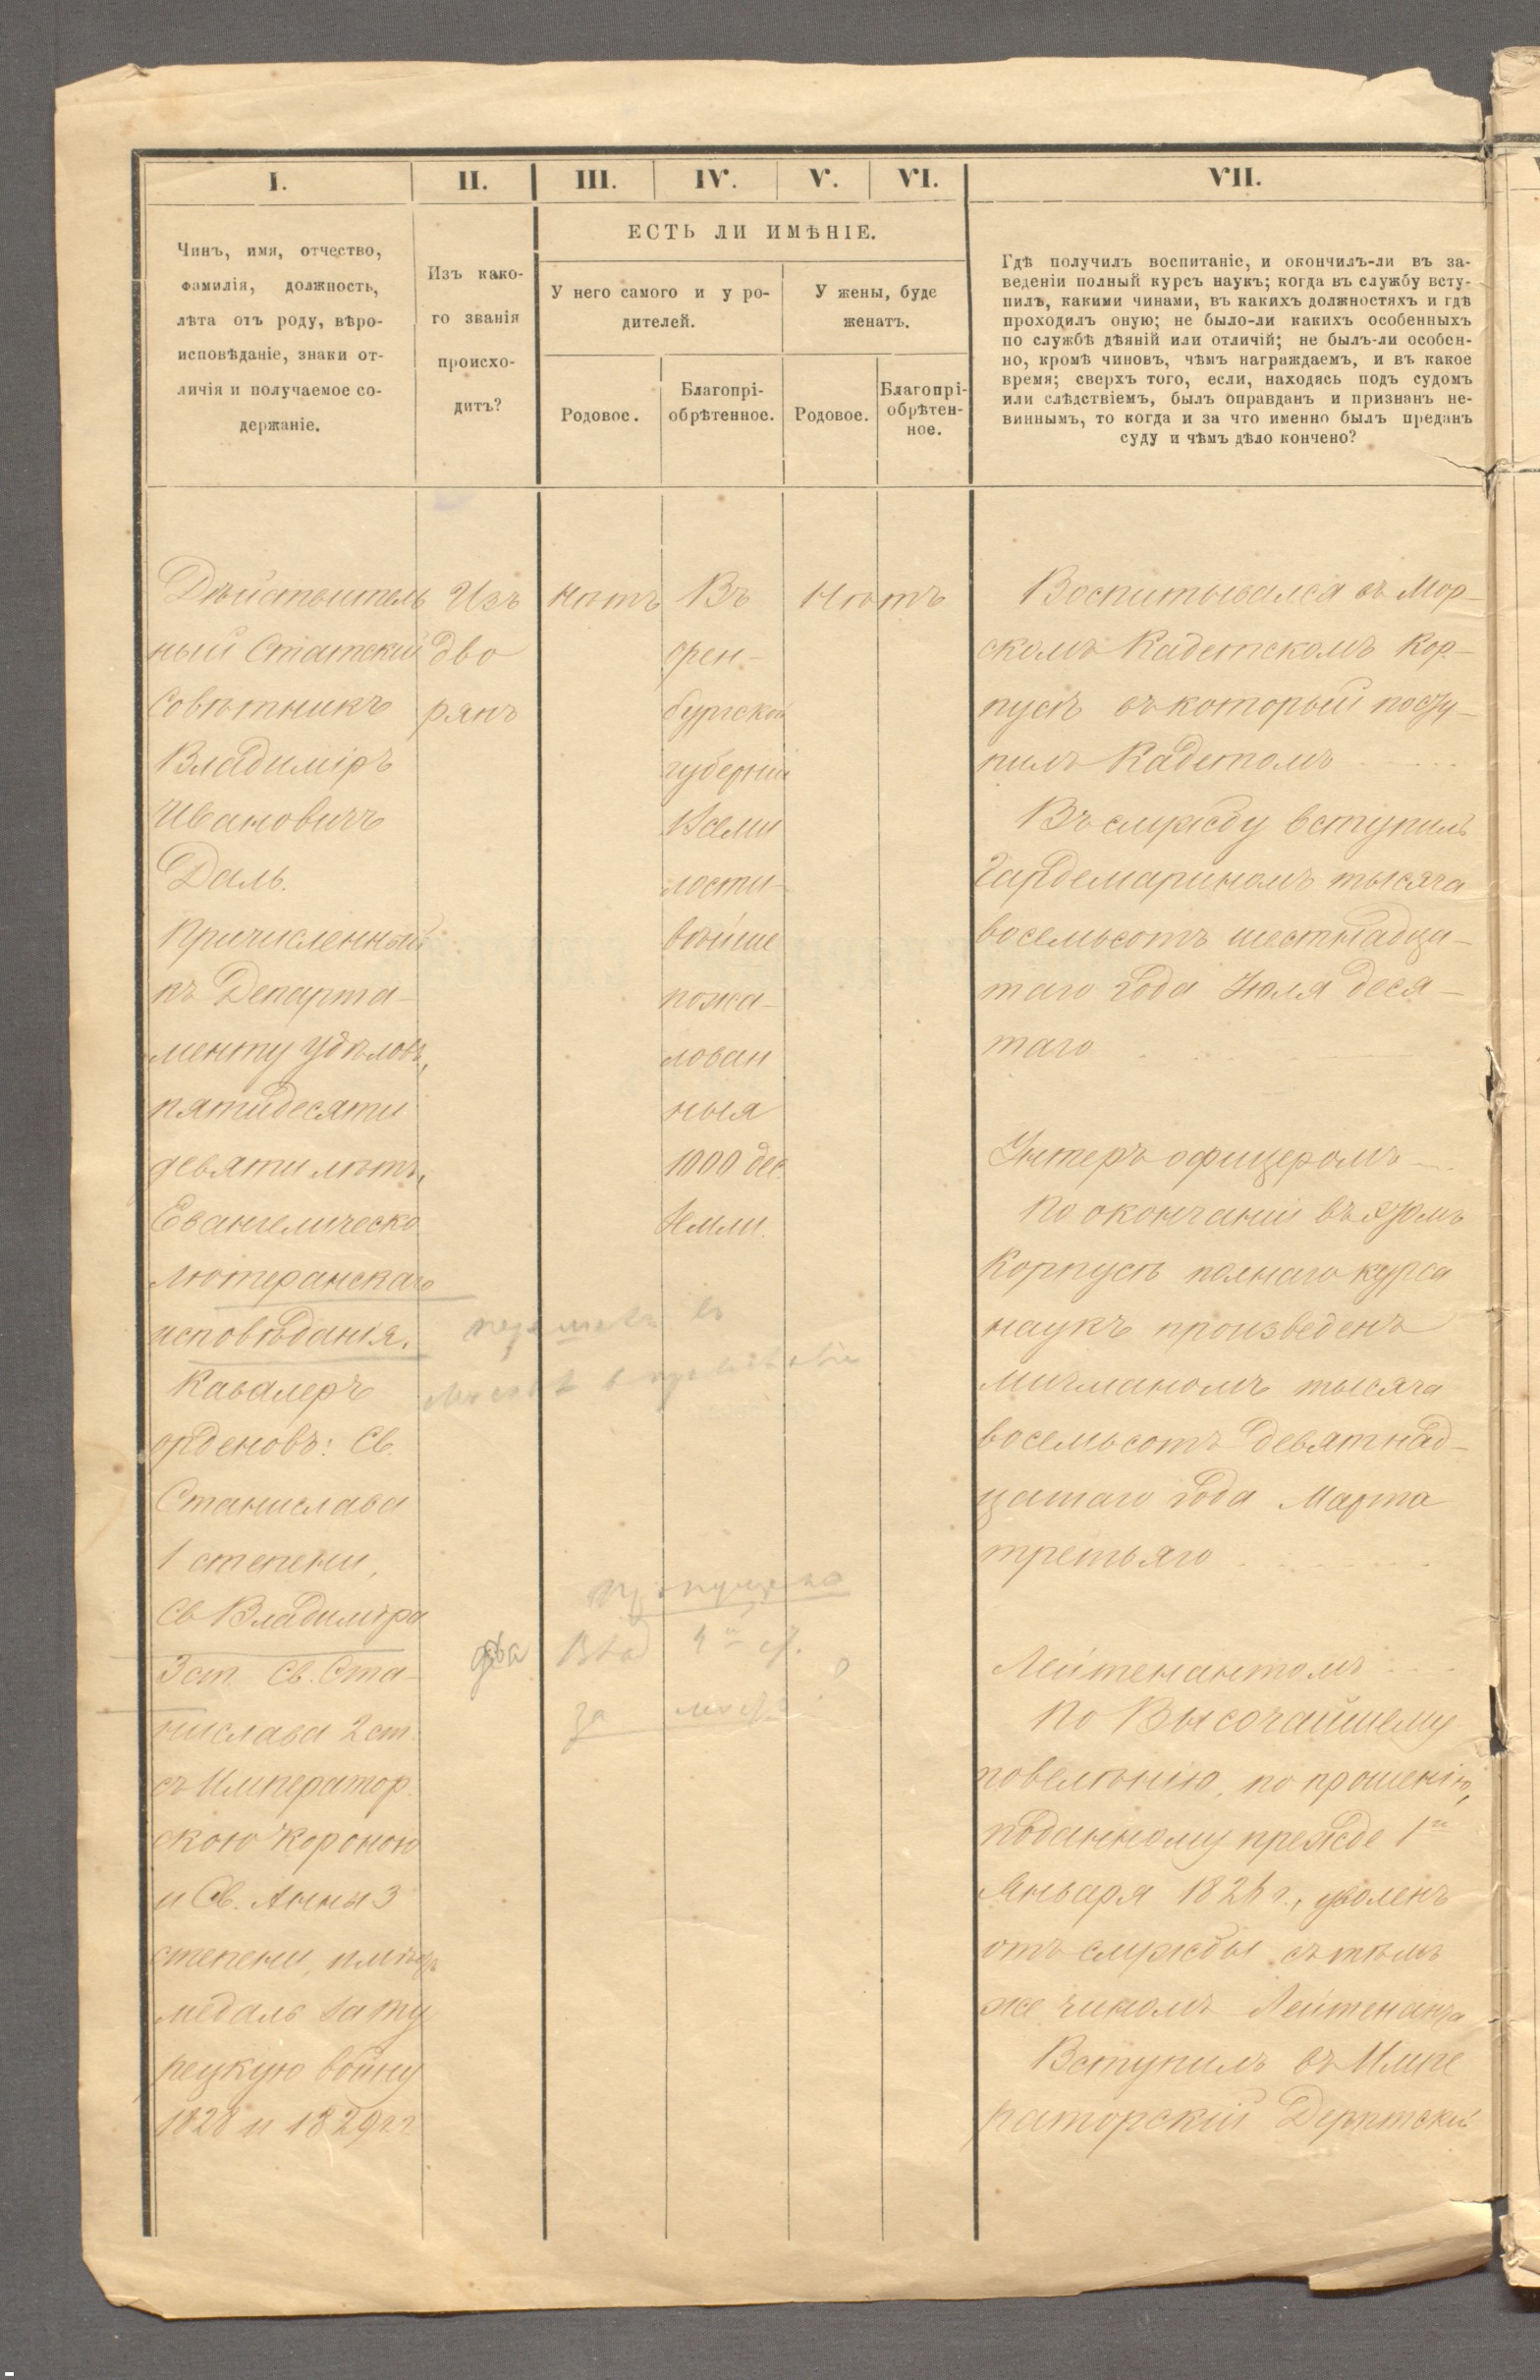 I.
II.
III.
IV.
V.
VI.
VII.
Чинъ, имя, отчество,
фамилія, должность,
лѣта отъ роду, вѣро-
исповѣданіе, знаки от-
личія и получаемое со-
держаніе.
Изъ како-
го званія
происхо-
дитъ?
ЕСТЬ ЛИ ИМѢНІЕ.
У него самого и у ро-
дителей.
У жены, буде
женатъ.
Родовое.
Благопрі-
обрѣтенное.
Родовое.
Благопрі-
обрѣтен-
ное.
Гдѣ получилъ воспитаніе, и окончилъ-ли въ за-
веденіи полный курсъ наукъ; когда въ службу всту-
пилъ, какими чинами, въ какихъ должностяхъ и гдѣ
проходилъ оную; не было-ли какихъ особенныхъ
по службѣ дѣяній или отличій; не былъ-ли особен-
но, кромѣ чиновъ, чѣмъ награждаемъ, и въ какое
время; сверхъ того, если, находясь подъ судомъ
или слѣдствіемъ, былъ оправданъ и признанъ не-
виннымъ, то когда и за что именно былъ преданъ
суду и чѣмъ дѣло кончено?
Дѣйствитель
ный Статскій
Совѣтникъ
Владиміръ
Ивановичъ
Даль.
Причисленный
къ Департа-
менту Удѣловъ,
пятидесяти
девяти лѣтъ,
Евангелическо
Лютеранскаго
исповѣданія.
Кавалеръ
орденовъ: Св.
Станислава
1 степени,
Св Владиміра
3 ст Св. Ста-
нислава 2 ст.
съ Император.
скою Короною
и Св. Анны 3
степени,
медаль за Ту
рецкую войну
1828 и 1829 г.г.
Изъ
дво
рянъ
Нѣтъ
Въ
Орен-
бургской
губерніи
Всеми
лости-
вѣйше
пожа-
лован
ныя
1000 дес.
Земли.
Нѣтъ
въ
пропущено
два
Влад 4й ст.
за
Воспитывался въ Мор-
скомъ Кадетскомъ Кор-
пусѣ въ который посту-
пилъ Кадетомъ
Въ службу вступилъ
Гардемариномъ тысяча
восемьсотъ шестнадца-
таго года Іюля деся-
таго
Унтеръ офицеромъ
По окончаніи въ этомъ
Корпусѣ полнаго курса
наукъ произведенъ
Мичманомъ тысяча
восемьсотъ девятнад-
цатаго года Марта
третьяго
Лейтенантомъ
По Высочайшему
повелѣнію, по прошенію,
поданному прежде 1го
Января 1826 г., уволенъ
отъ службы съ тѣмъ
же чиномъ Лейтенанта
Вступилъ въ Импе
раторскій Дерптскій